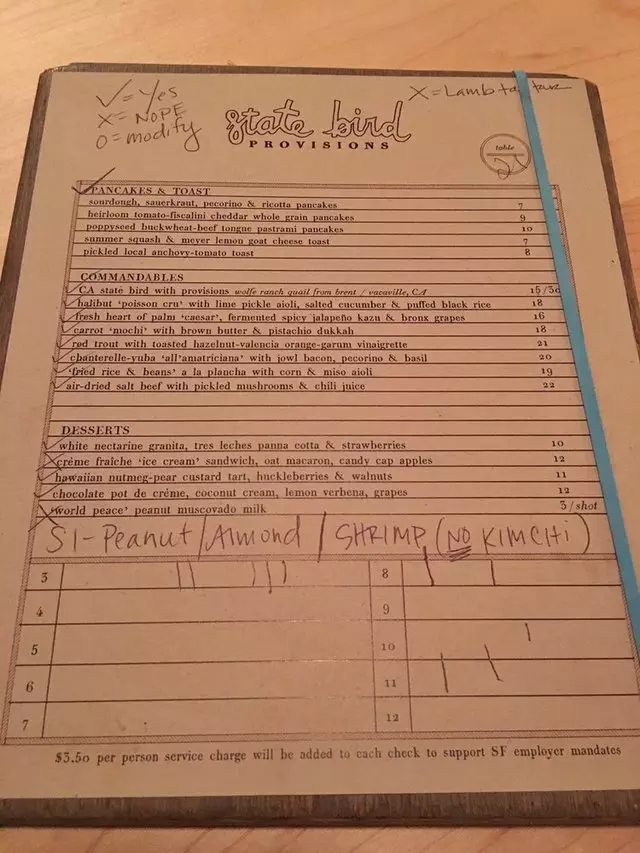 ✓ = Yes
X = NOPE
O = modify
X = Lamb
state bird
PROVISIONS
table
PANCAKES & TOAST
sourdough, sauerkraut, pecorino & ricotta pancakes 7
heirloom tomato-fiscalini cheddar whole grain pancakes 9
poppyseed buckwheat-beef tongue pastrami pancakes 10
summer squash & meyer lemon goat cheese toast 7
pickled local anchovy-tomato toast 8
COMMANDABLES
CA state bird with provisions wolfe ranch quail from brent / vacaville, CA 15/30
halibut 'poisson cru' with lime pickle aioli, salted cucumber & puffed black rice 18
fresh heart of palm 'caesar', fermented spicy jalapeño kazu & bronx grapes 16
carrot 'mochi' with brown butter & pistachio dukkah 18
red trout with toasted hazelnut-valencia orange-garum vinaigrette 21
chanterelle-yuba 'all'amatriciana' with jowl bacon, pecorino & basil 20
'fried rice & beans' a la plancha with corn & miso aioli 19
air-dried salt beef with pickled mushrooms & chili juice 22
DESSERTS
white nectarine granita, tres leches panna cotta & strawberries 10
crème fraîche 'ice cream' sandwich, oat macaron, candy cap apples 12
hawaiian nutmeg-pear custard tart, huckleberries & walnuts 11
chocolate pot de crème, coconut cream, lemon verbena, grapes 12
'world peace' peanut muscovado milk 3/shot
S1-Peanut/Almond/SHRIMP (NO KIMCHI)
3 8
4 9
5 10
6 11
7 12
$3.50 per person service charge will be added to each check to support SF employer mandates